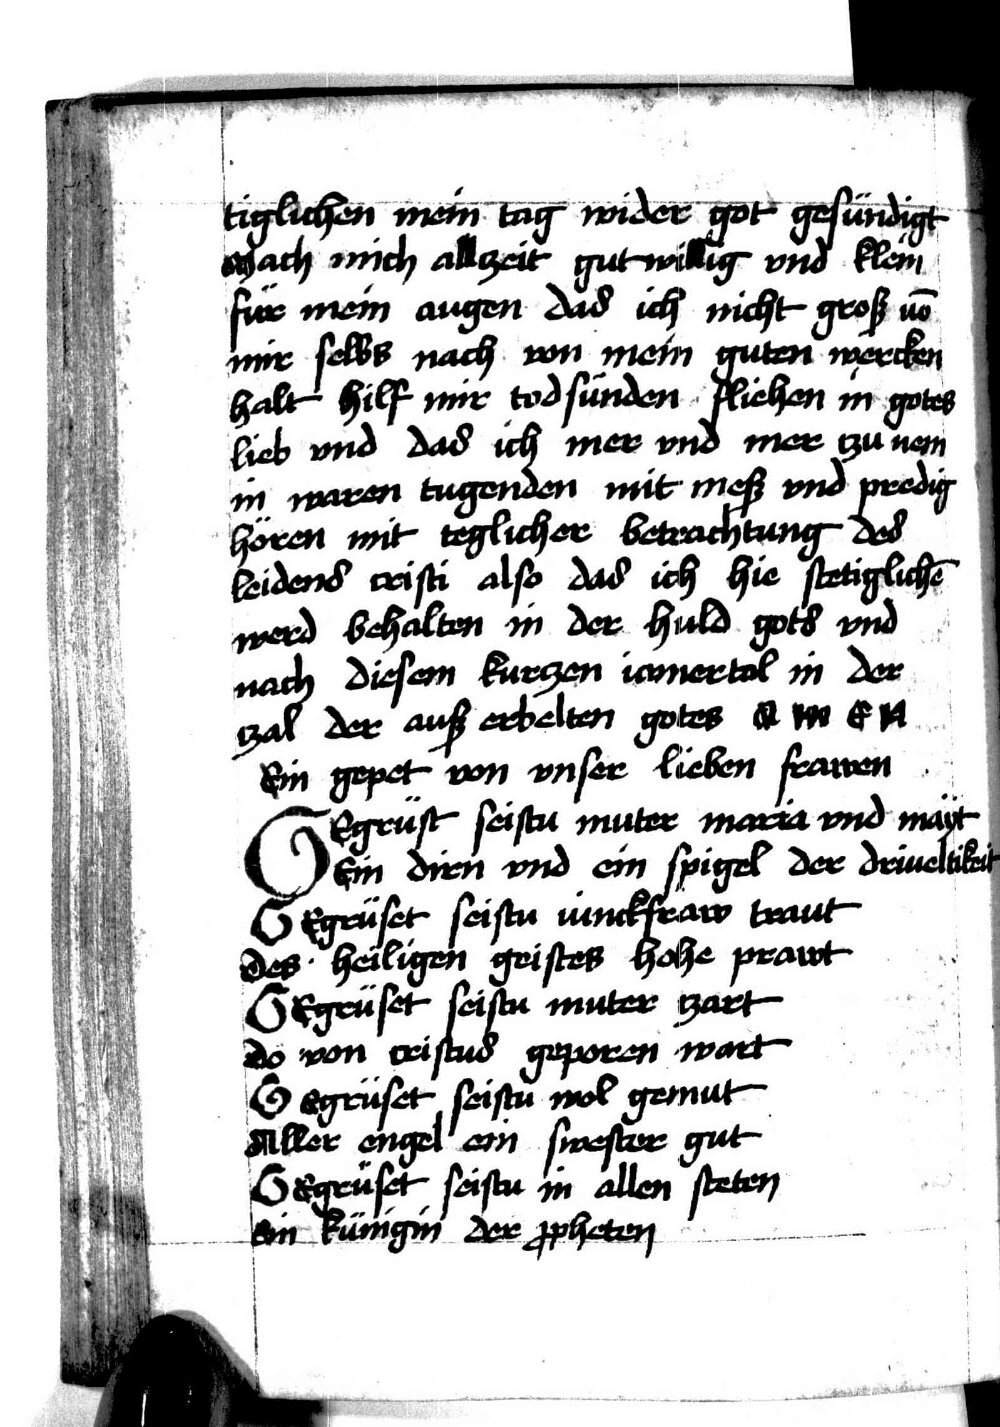 tiglichen mein tag wider got gesündigt
Mach mich allzeit gutwillig vnd klein
für mein augen das ich nicht groß vō
mir selbs nach von mein guten wercken
halt hilf mir todsünden fliehen in gotes
lieb vnd das ich mer vnd mer tzu nem
in waren tugenden mit meß vnd predig
hören mit teglicher betrachtung des
leidens cristi also das ich hie stetiglichē
werd behalten in der huld gots vnd
nach diesem kurczen iamertal in der
tzal der auß erbelten gotes AMEN
Ein gepet von vnser lieben frawen
GEgrüst seistu muter maria vnd mäyt
Ein dirn vnd ein spigel der driueltikeit
GEgrüset seistu iunckfraw traut
des heiligen geistes hohe prawt
GEgrüset seistu muter tzart
do von cristus geporen wart
GEgrüset seistu wol gemut
Aller engel ein swester gut
GEgrüset seistu in allen steten
ein künigin der ꝓpheten